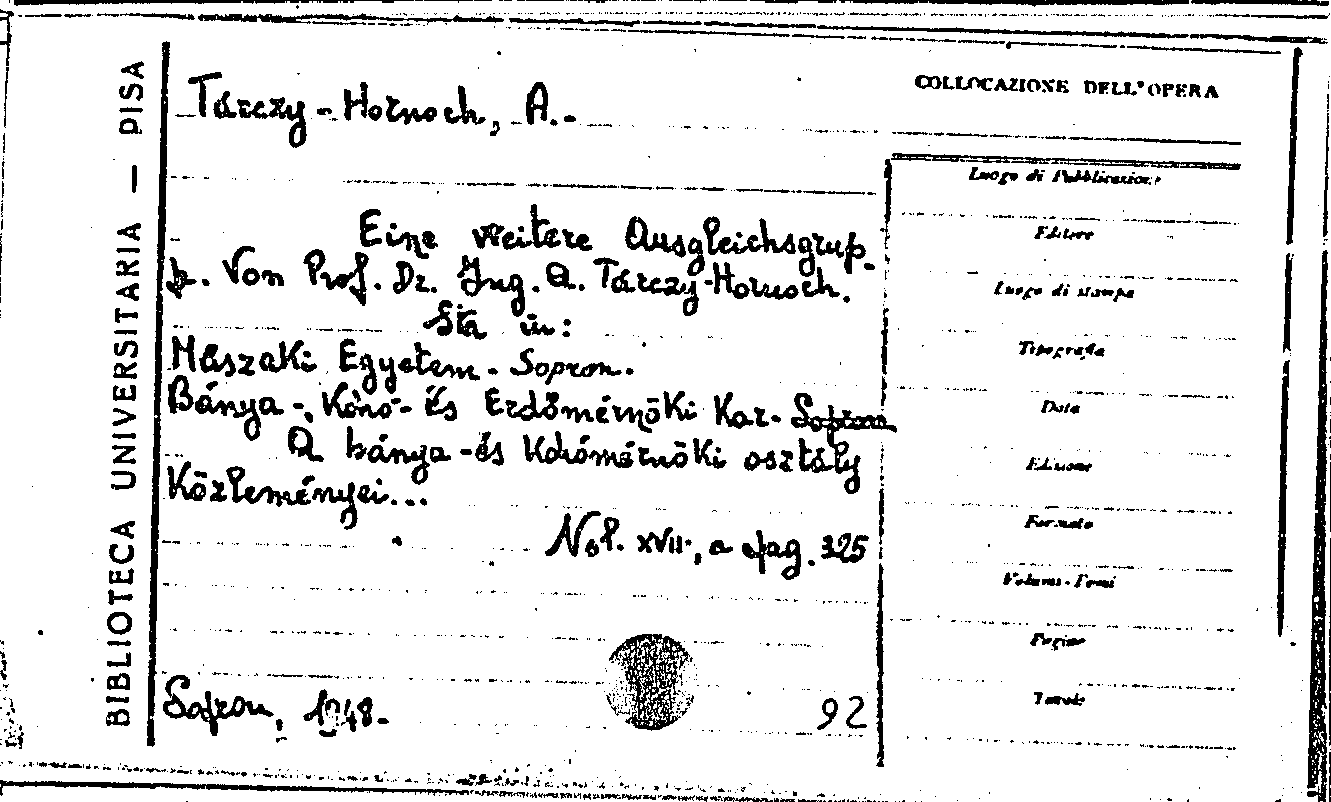 BIBLIOTECA UNIVERSITARIA — PISA
Tárczy-Hornoch, A.-
Eine weitere Ausgleichsgrup-
p. Von Prof. Dr. Ing. A. Tárczy-Hornoch.
Sta in:
Műszaki Egyetem - Sopron.
Bánya-, Kohó- és Erdőmérnöki Kar- Sopron
A bánya-és Kohómérnöki osztály
Közleményei...
Vol. XVII., a pag. 325
Sopron, 1948-
92
COLLOCAZIONE DELL'OPERA
Luogo di Pubblicazione
Editore
Luogo di stampa
Tipografia
Data
Edizione
Formato
Volumi-Tomi
Pagine
Tavole